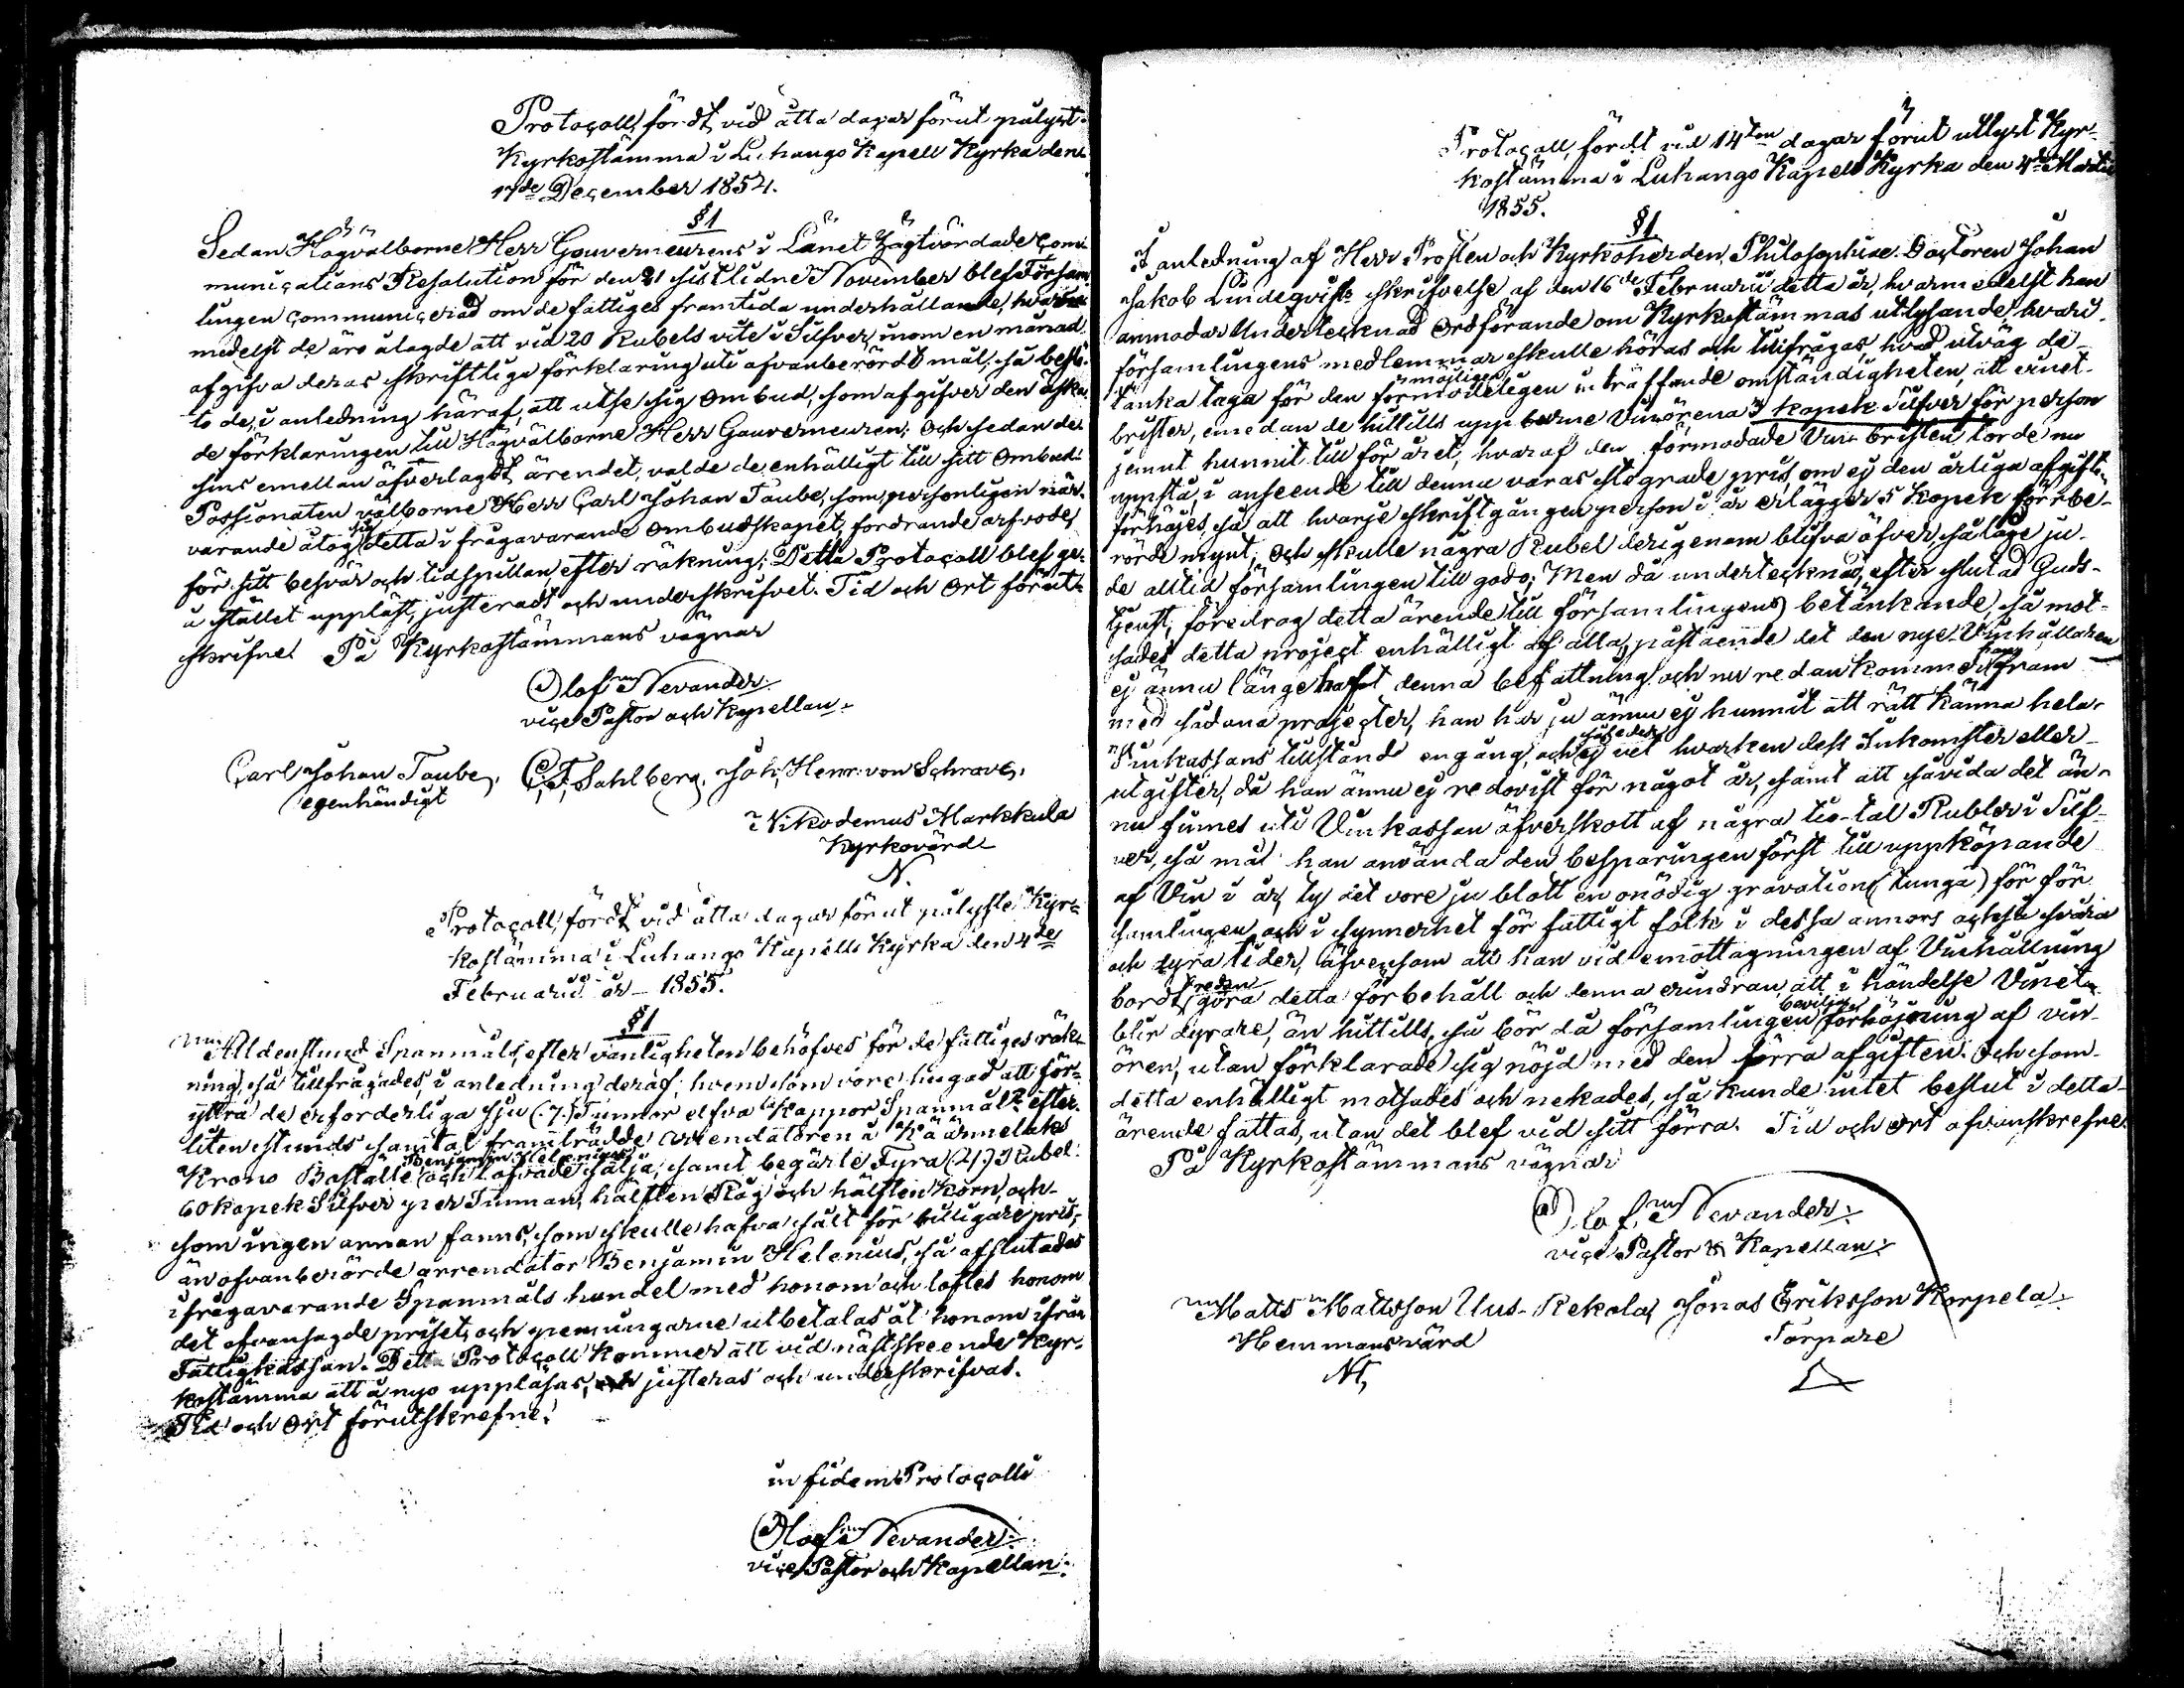 Protocoll, fördt vid åtta dagar förut pålyst
Kyrkostämma i Luhango Kapell Kyrka den
17de December 1854.
§ 1
Sedan Högvälborne Herr Gouverneurens i Länet högtvördade Com-
municatians Resolution för den 21 sistlidne November blef Försam-
lingen communicerad om de fattiges framtida underhållande, hvar
medelst de äro ålagde att vid 20 Rubels vite i Silfver, inom en månad
afgifva deras skriftliga förklaring uti ofvanberörde mål, så beslö-
to de, i anledning häraf, att utse sig Ombud, som afgifver den äska-
de förklaringen till Högvälborne Herr Gouverneuren; Och sedan de
sins emellan öfverlagdt ärendet, valde de enhälligt till sitt Ombud
Possionaten välborne Herr Carl Johan Taube, som personligen när-
varande åtog sig detta i frågavarande Ombudskapet, fordrande arfvode,
för sitt besvär och tidspillan, efter räkning; Detta Protocoll blef ge-
nast i stället uppläst, justeradt och underskrifvet. Tid och Ort förut-
skrifne. På Kyrkostämmans vägnar
Olof Nevander
vice Pastor och Kapellan.
Carl Johan Taube, C. F. Sahlberg. Joh. Henr. von Schrave,
egenhändigt
Nikodemus Markkula
Kyrkovärd
N.
Protocoll, fördt vid åtta dagar förut pålyste Kyr-
kostämma i Luhango Kapells Kyrka den 4de
Februarii år 1855.
§ 1
Alldenstund Spanmål, efter vanligheten behöfves för de fattiges räk-
ning, så tillfrågades, i anledning deraf, hvem som vore hugad att för-
yttra de erforderliga sju (7.) Tunnor elfva Kappor Spanmål? efter
liten stunds samtal framträdde Arrendatoren å Käärmelaks
Krono Boställe Benjamin Helenius och lofvade sälja, samt begärte Fyra (4.) Rubel
60 kopek Silfver per Tunnan, hälften Råg och hälften Korn, och
som ingen annan fanns, som skulle hafva sålt för billigare pris,
än ofvanberörde arrendator Benjamin Helenius, så afslutades
ifrågavarande Spanmåls handel med honom och loftes honom
det ofvansagde priset, och penningarne utbetalas åt honom ifrån
Fattigkassan. Detta Protocoll kommer att vid nästskeende Kyr-
kostämma att å nyo uppläsas, justeras och underskrifvas.
Tid och Ort förutskrefne.
in fidem Protocolli
Olof Nevander
vice Pastor och Kapellan.
Protocoll, fördt vid 14ton dagar förut utlyst Kyr-
kostämma i Luhango Kapell Kyrka den 4de Martii
1855.
§ 1
I anledning af Herr Prosten och Kyrkoherden, Philosophiae Doctoren Johan
Jakob Lindeqvists skrifvelse af den 16de Februarii detta år, hvarmedelst han
anmodar Undertecknad Ordförande om Kyrkostämmas utlysande, hvari
församlingens medlemmar skulle höras och tillfrågas, hvad utväg de
tänka taga för den förmodeligen möjligen inträffande omständigheten, att vinet
brister, emedan de hittills uppburne Vinörena 3 kopek Silfver för person
jemnt hunnit till för året, hvaraf den förmodade Vin bristen torde nu
uppstå, i anseende till denna varas stegrade pris, om ej den årliga afgiften
förhöjes, så att hvarje skriftgången person i år erlägger 5 kopek förbe-
rörde mynt, Och skulle några Rubel derigenom blifva öfver, så låge ju
de alltid församlingen till godo; Men då undertecknad, efter slutad Guds-
tjenst, föredrog detta ärende till församlingens betänkande, så mot-
sades detta project enhälligt af alla, påstående det den nye Vinhållaren
ej ännu länge haft denna befattning och nu redan kommer han fram
med sådana projecter, han har ju ännu ej hunnit att rätt känna hela
Vinkassans tillstånd engång, och således ej vet hvarken dess Inkomster eller
utgifter, då han ännu ej redovist för något år, samt att såvida det än-
nu finnes uti Vinkassan öfverskott af några tio-tal Rubler i Silf-
ver, så må han använda den besparingen först till uppköpande
af Vin i år, ty det vore ju blott en onödig gravation (tunga) för för-
samlingen, och i synnerhet för fattigt folk i dessa annors också svåra
och dyra tider, äfvensom att han vid emottagningen af Vinhållning
bordt redan göra detta förbehåll och denna erindran, att i händelse Vinet
blir dyrare, än hittills, så bör då församlingen bevilja förhöjning af vin-
ören, utan förklarade sig nöjd med den förra afgiften. Och som
detta enhälligt motsades och nekades, så kunde intet beslut i detta
ärende fattas, utan det blef vid sitt förra. Tid och Ort ofvanskrefne.
På Kyrkostämmans vägnar
Olof Nevander.
vice Pastor & Kapellan.
Matts Mattsson Uus-Rekola, Jonas Eriksson Korpela.
Hemmansvärd Torpare